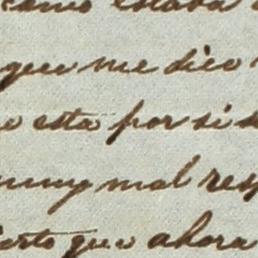 como estava
que me dico
o esta por si
muy mal res
ierto que ahora